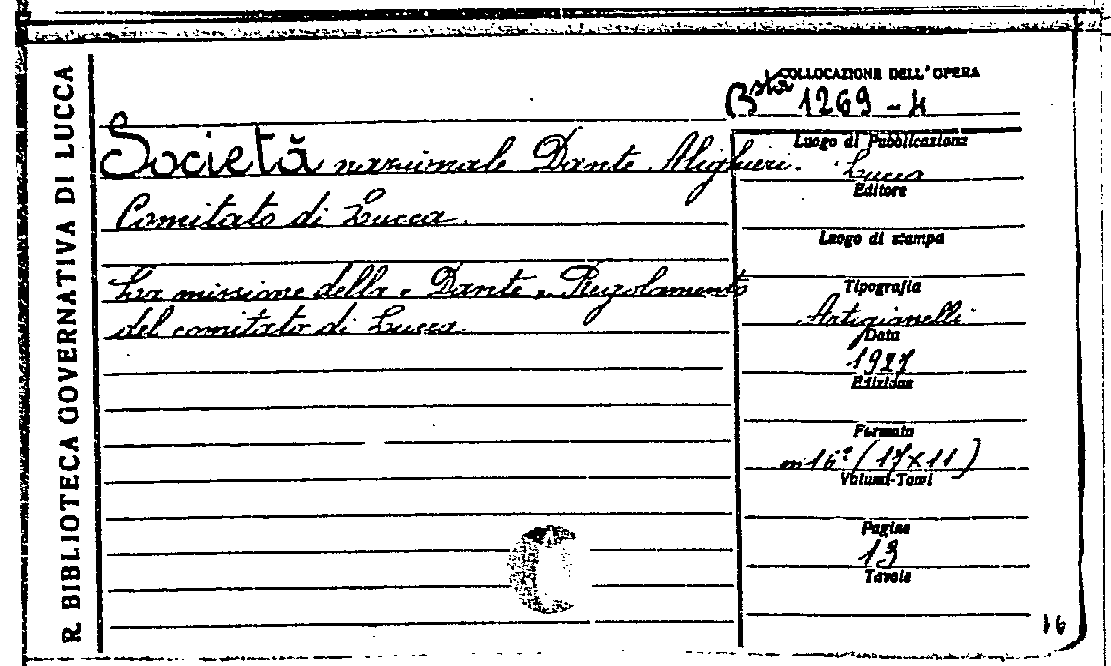 R. BIBLIOTECA GOVERNATIVA DI LUCCA
COLLOCAZIONE DELL'OPERA
Bsta 1269-4
Società nazionale Dante Alighieri.
Comitato di Lucca.
La missione della « Dante » Regolamento
del comitato di Lucca.
Luogo di Pubblicazione
Lucca
Editore
Luogo di stampa
Tipografia
Artigianelli
Data
1927
Edizione
Formato
in 16° (17×11)
Volumi-Tomi
Pagine
13
Tavole
16